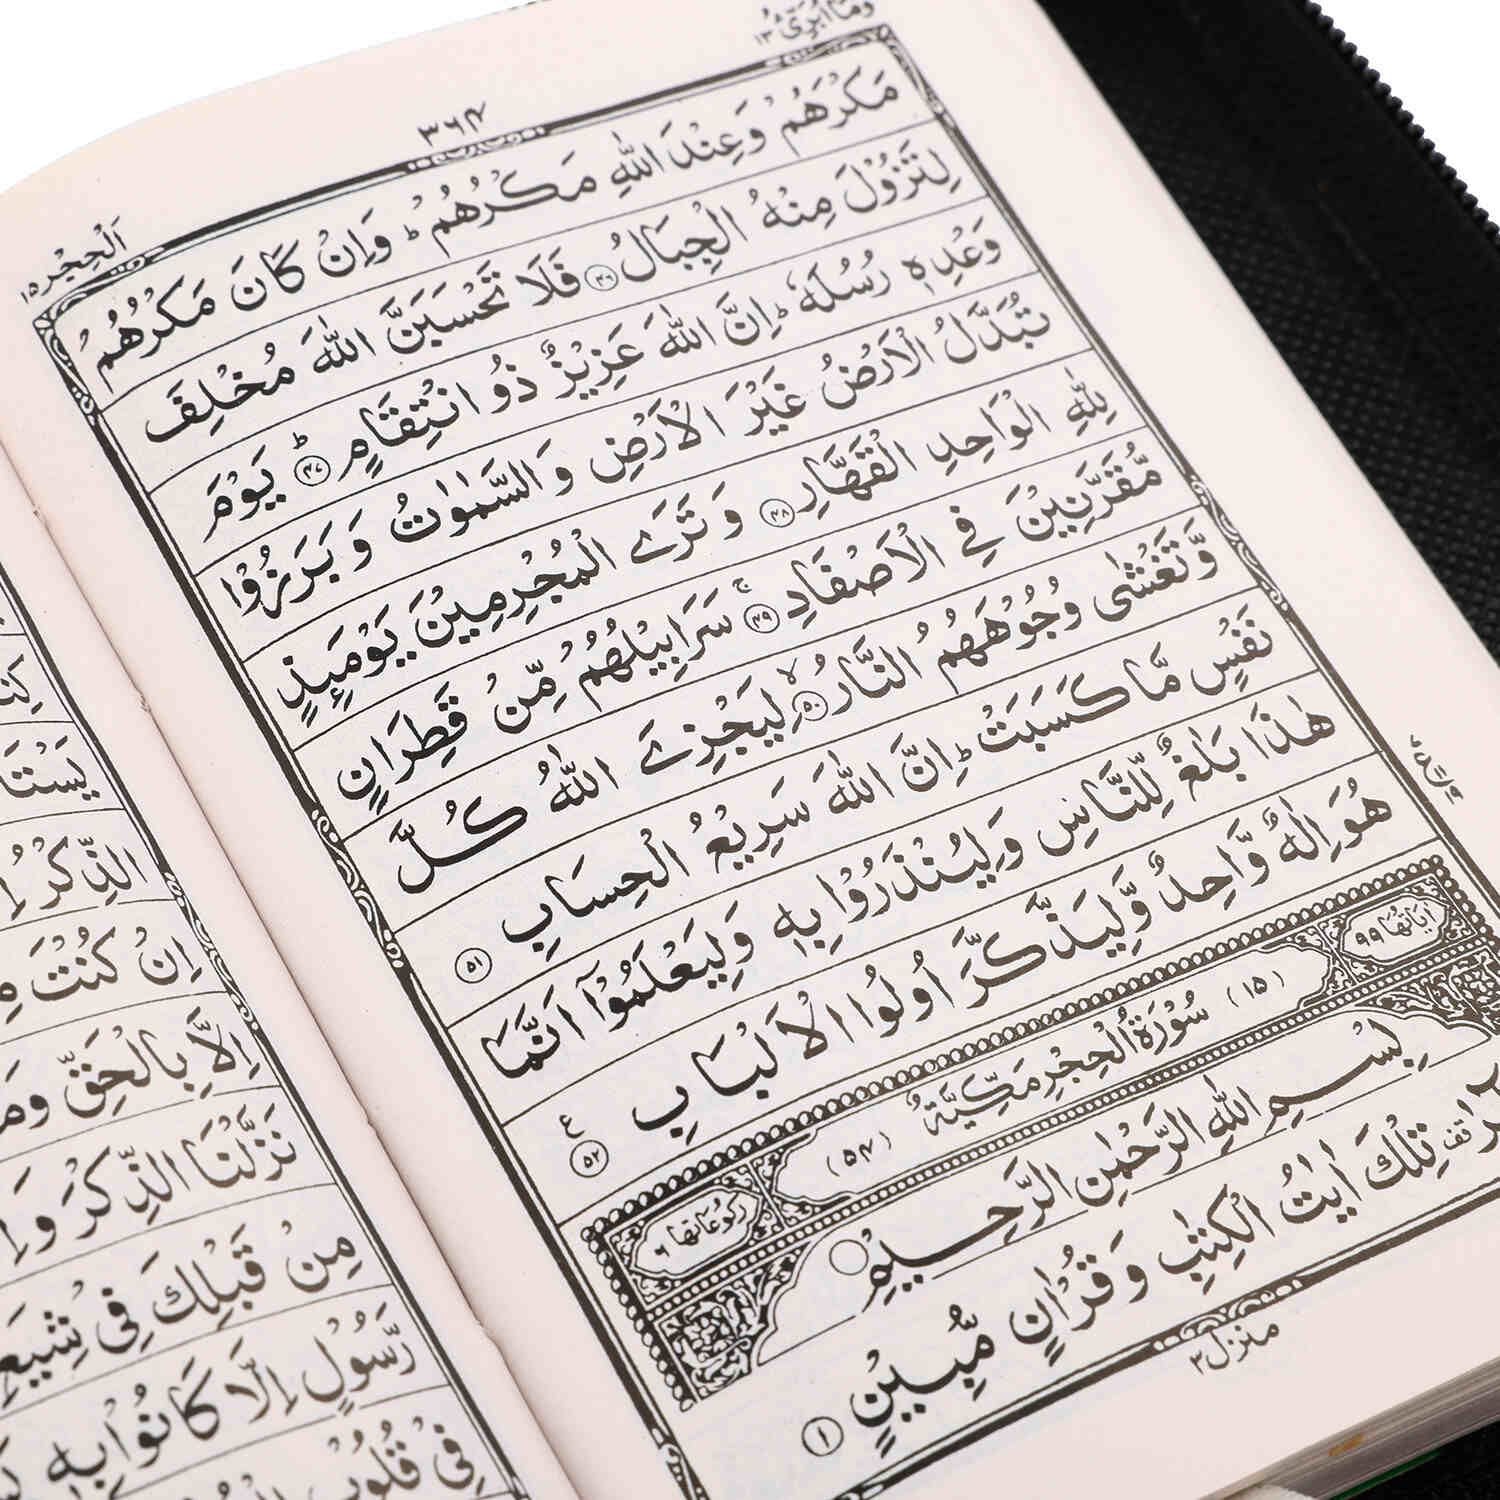 وما ابرئ ١٣
٣٦٤
الحجر ١٥
مَكْرَهُمْ وَعِنْدَ اللّٰهِ مَكْرُهُمْ ؕ وَاِنْ كَانَ مَكْرُهُمْ
لِتَزُوْلَ مِنْهُ الْجِبَالُ ﴿۴۶﴾ فَلَا تَحْسَبَنَّ اللّٰهَ مُخْلِفَ
وَعْدِهٖ رُسُلَهٗ ؕ اِنَّ اللّٰهَ عَزِيْزٌ ذُو انْتِقَامٍ ؕ ﴿۴۷﴾ يَوْمَ
تُبَدَّلُ الْاَرْضُ غَيْرَ الْاَرْضِ وَالسَّمٰوٰتُ وَبَرَزُوْا
لِلّٰهِ الْوَاحِدِ الْقَهَّارِ ﴿۴۸﴾ وَتَرَى الْمُجْرِمِيْنَ يَوْمَئِذٍ
مُّقَرَّنِيْنَ فِي الْاَصْفَادِ ۚ ﴿۴۹﴾ سَرَابِيْلُهُمْ مِّنْ قَطِرَانٍ
وَّتَغْشٰى وُجُوْهَهُمُ النَّارُ ۙ ﴿۵۰﴾ لِيَجْزِيَ اللّٰهُ كُلَّ
نَفْسٍ مَّا كَسَبَتْ ؕ اِنَّ اللّٰهَ سَرِيْعُ الْحِسَابِ ﴿۵۱﴾
هٰذَا بَلٰغٌ لِّلنَّاسِ وَلِيُنْذَرُوْا بِهٖ وَلِيَعْلَمُوْۤا اَنَّمَا
هُوَ اِلٰهٌ وَّاحِدٌ وَّلِيَذَّكَّرَ اُولُوا الْاَلْبَابِ ﴿۵۲﴾ ع
اٰيَاتُهَا ٩٩
(١٥) سُوْرَةُ الْحِجْرِ مَكِّيَّةٌ (۵۴)
رُكُوْعَاتُهَا ٦
بِسْمِ اللّٰهِ الرَّحْمٰنِ الرَّحِيْمِ
قف تِلْكَ اٰيٰتُ الْكِتٰبِ وَقُرْاٰنٍ مُّبِيْنٍ ﴿۱﴾
منزل ٣
الذِّكْرُ
اِنْ كُنْتَ
اِلَّا بِالْحَقِّ
نَزَّلْنَا الذِّكْرَ
مِنْ قَبْلِكَ فِيْ
رَّسُوْلٍ اِلَّا كَانُوْا بِهٖ
فِيْ قُلُوْبِ